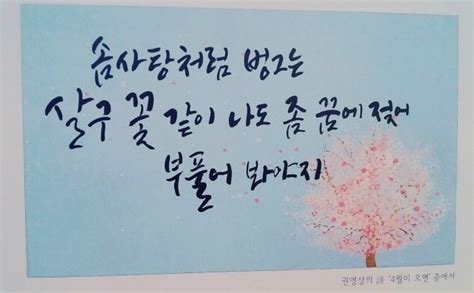 솜사탕처럼 벙그는
살구 꽃 같이 나도 좀 꿈에 젖어
부풀어 봐야지
권영상의 詩 '4월이 오면' 중에서